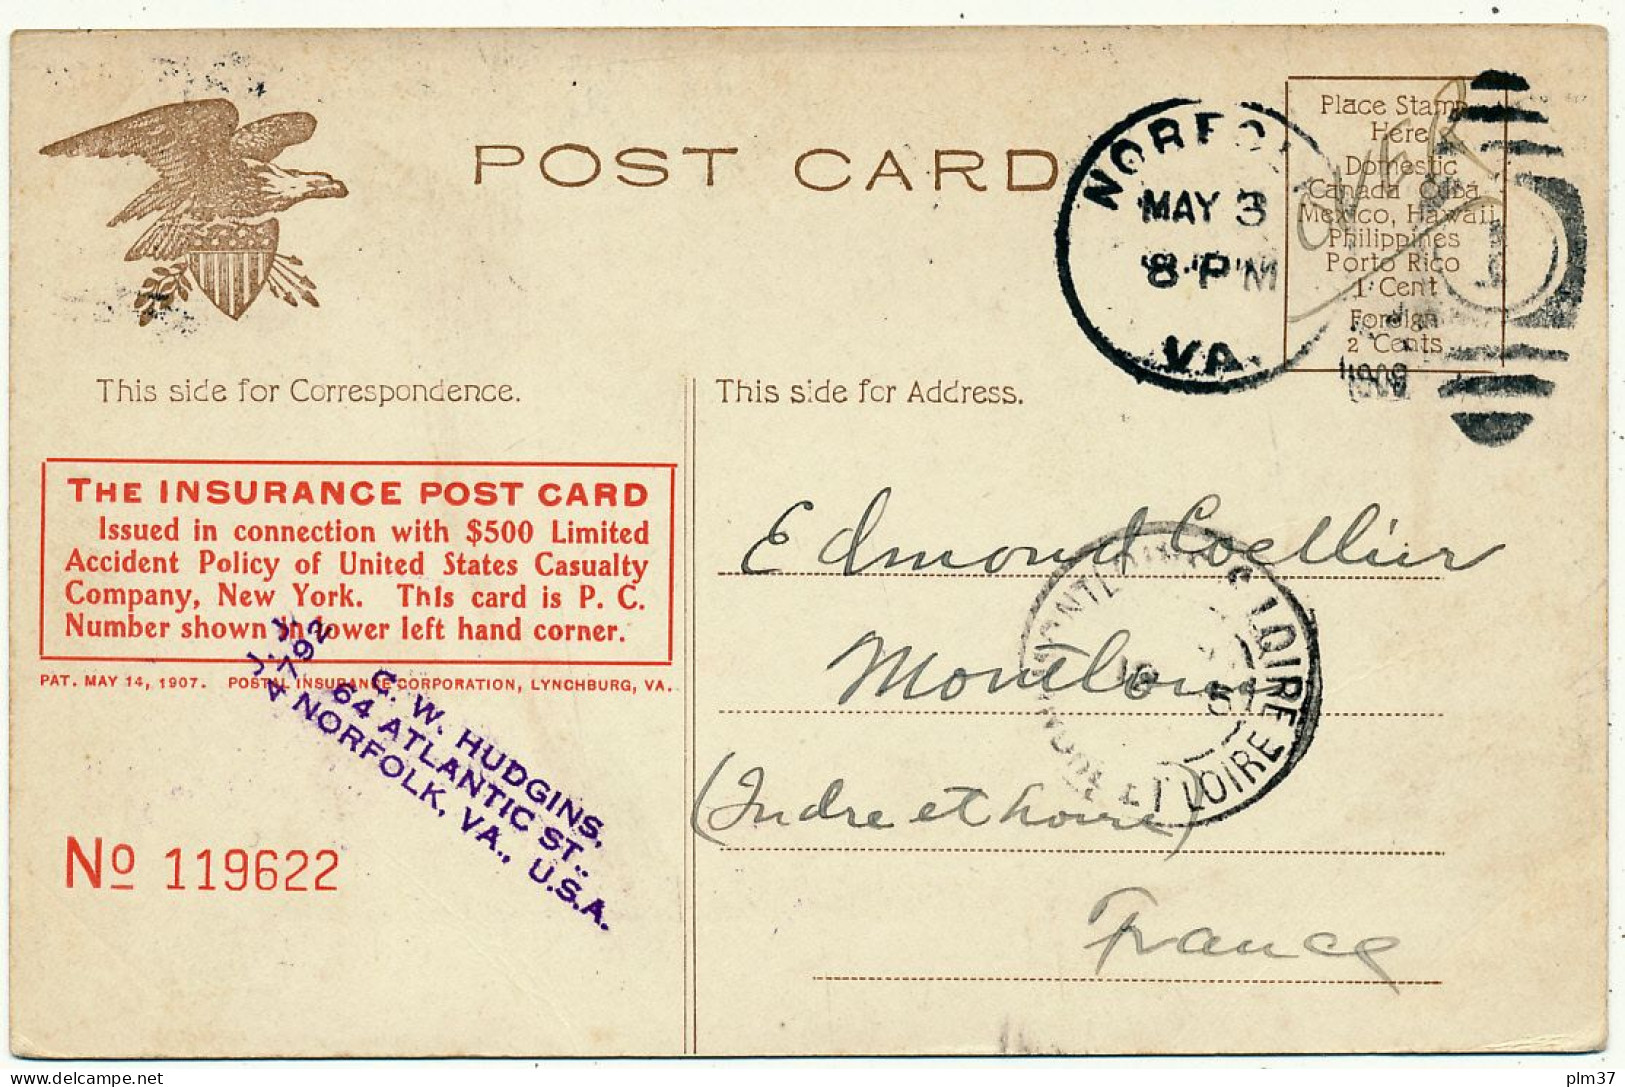 POST CARD
Place Stamp
Here
Domestic
Canada Cuba
Mexico, Hawaii
Philippines
Porto Rico
1 Cent
Foreign
2 Cents
NORFOL
MAY 3
8-PM
VA.
1909
over
This side for Correspondence.
This side for Address.
THE INSURANCE POST CARD
Issued in connection with $500 Limited
Accident Policy of United States Casualty
Company, New York. This card is P. C.
Number shown in lower left hand corner.
PAT. MAY 14, 1907. POSTAL INSURANCE CORPORATION, LYNCHBURG, VA.
4792
C. W. HUDGINS,
64 ATLANTIC ST.,
NORFOLK, VA., U.S.A.
No 119622
Edmond Coellier
Montlouis
(Indre et Loire)
France
MONTLOUIS S LOIRE
INDRE ET LOIRE
plm37